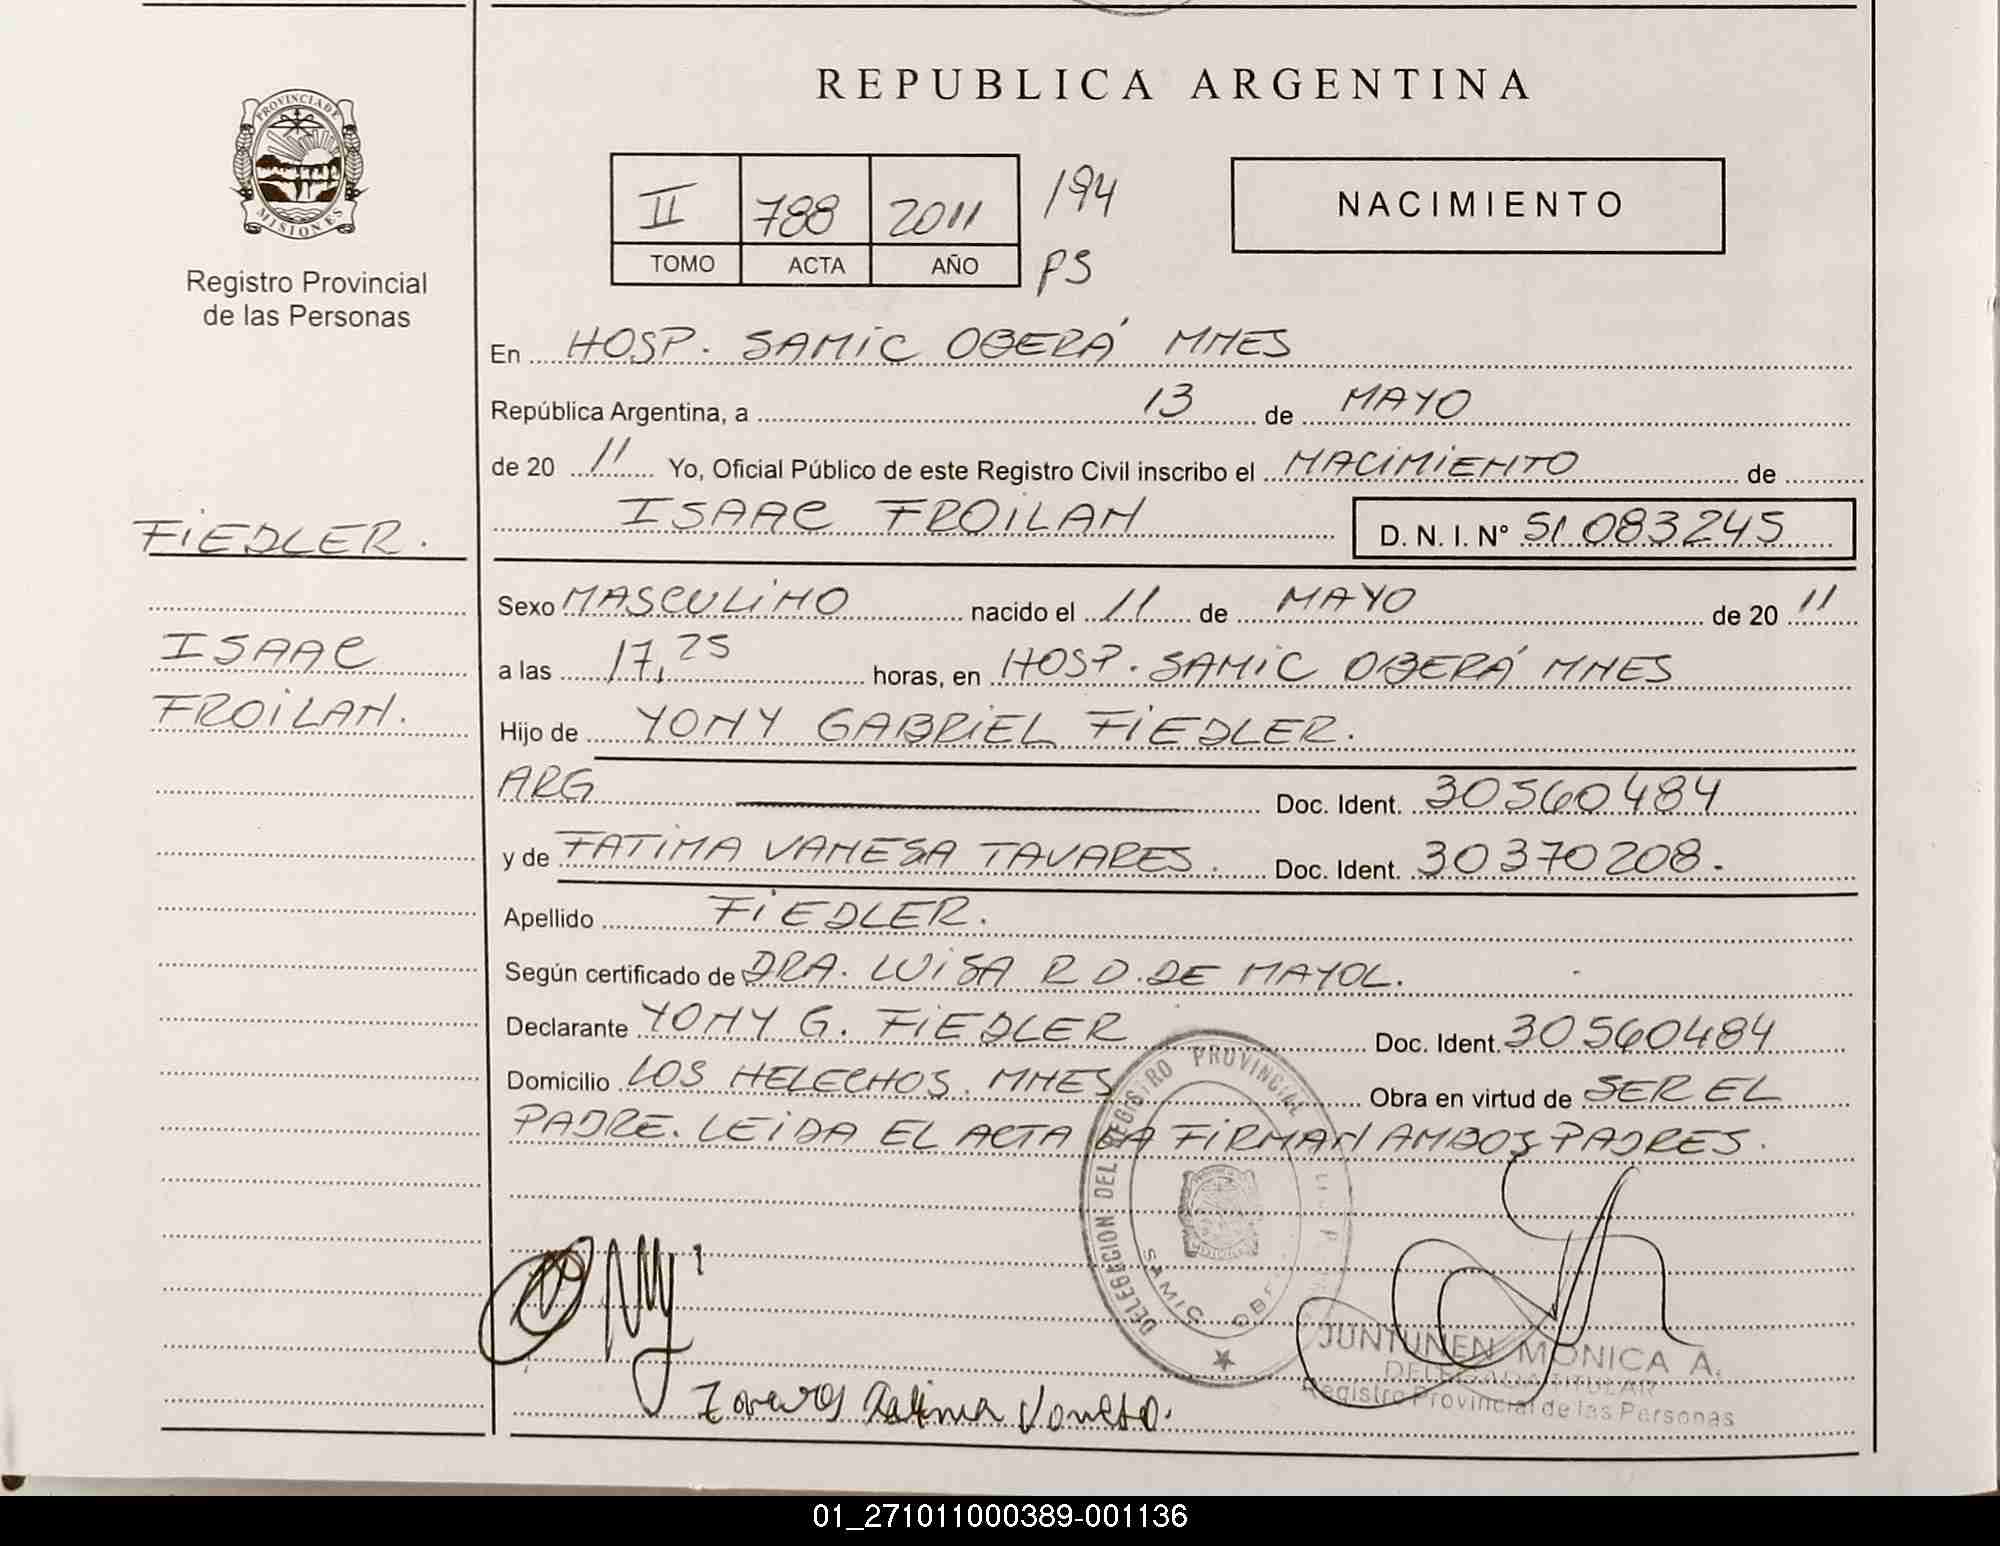 REPUBLICA ARGENTINA
PROVINCIA DE
MISIONES
Registro Provincial
de las Personas
II 788 2011 194
TOMO ACTA AÑO PS
NACIMIENTO
En HOSP. SAMIC OBERÁ MNES
República Argentina, a 13 de MAYO
de 20 11 Yo, Oficial Público de este Registro Civil inscribo el NACIMIENTO de
ISAAC FROILAN D. N. I. N° 51 083245
FIEDLER.
ISAAC
FROILAN.
Sexo MASCULINO nacido el 11 de MAYO de 20 11
a las 17,25 horas, en HOSP. SAMIC OBERÁ MNES
Hijo de YONY GABRIEL FIEDLER.
ARG Doc. Ident. 30560484
y de FATIMA VANESA TAVARES. Doc. Ident. 30370208.
Apellido FIEDLER.
Según certificado de DRA. LUISA R D. DE MAYOL.
Declarante YONY G. FIEDLER Doc. Ident. 30560484
Domicilio LOS HELECHOS. MNES Obra en virtud de SER EL
PADRE. LEIDA EL ACTA LA FIRMAN AMBOS PADRES.
DELEGACION DEL REGISTRO PROVINCIAL
SAMIC
Tavares Fatima Vanesa.
JUNTUNEN MONICA A.
DELEGADA TITULAR
Registro Provincial de las Personas
01_271011000389-001136